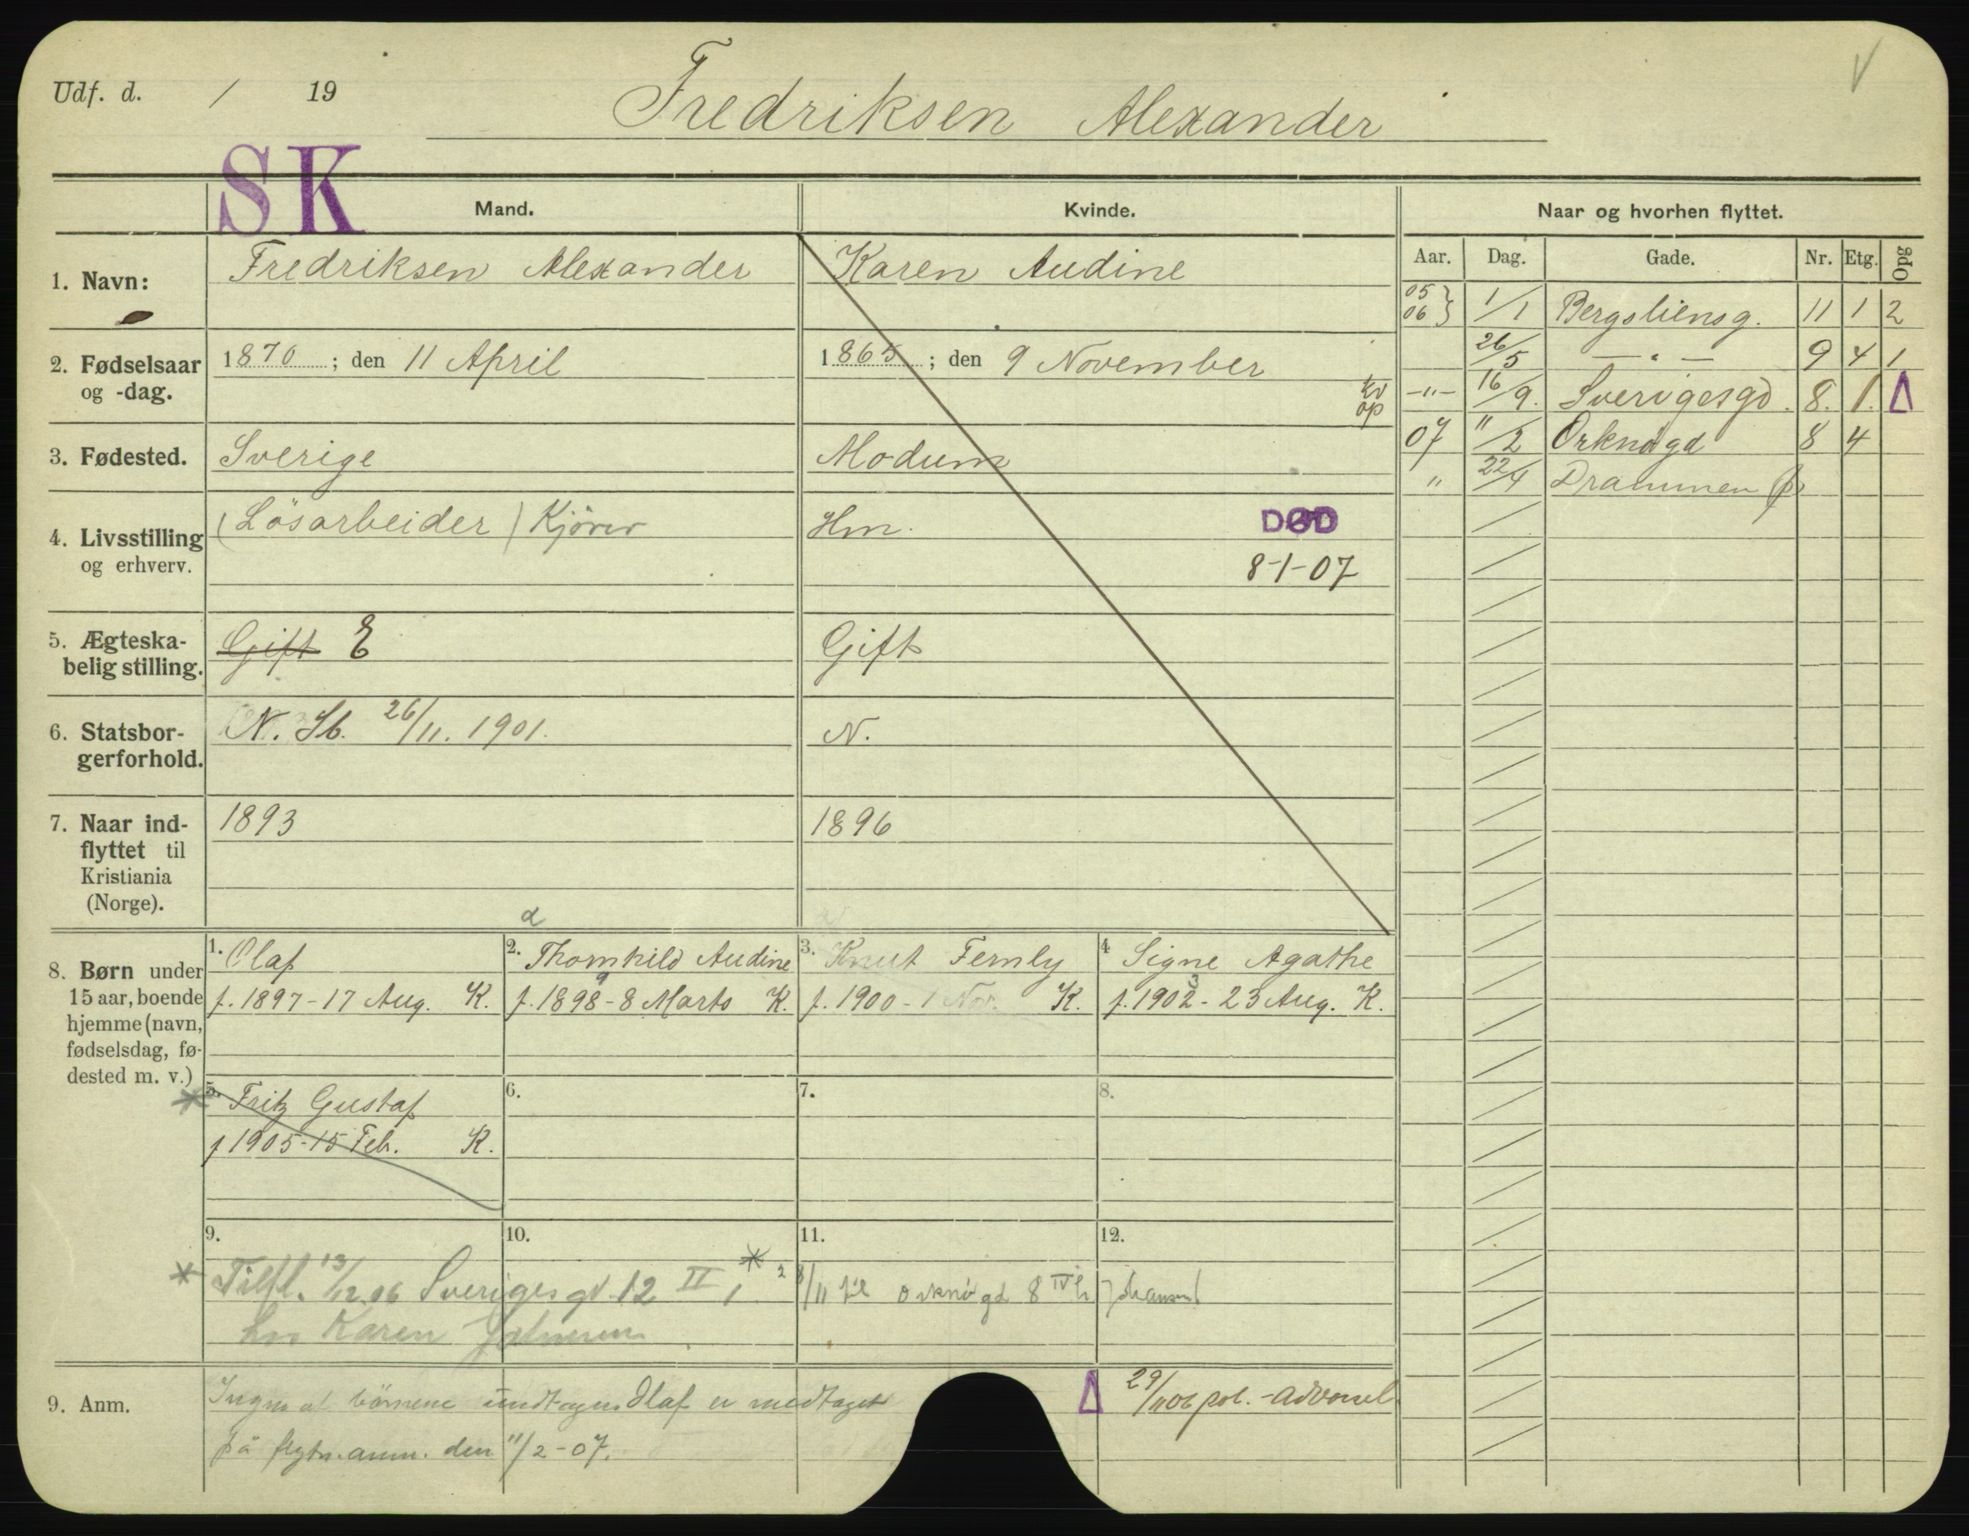 Udf. d. / 19
Fredriksen Alexander
V
SK
Mand.
Kvinde.
Naar og hvorhen flyttet.
Aar. Dag. Gade. Nr. Etg. Opg
1. Navn:
Fredriksen Alexander
Karen Audine
05 06 } 1/1 Bergsliensg. 11 1 2
26/5 — " — 9 4 1
2. Fødselsaar og -dag.
1870 ; den 11 April
1865 ; den 9 November
kv op
-"- 16/9. Sverigesgd. 8. 1. Δ
07 "/2 Orknøgd 8 4
" 22/4 Drammen
3. Fødested.
Sverige
Modum
4. Livsstilling og erhverv.
(Lösarbeider) Kjörer
Hm.
DØD
8-1-07
5. Ægteskabelig stilling.
Gift E
Gift
6. Statsborgerforhold.
N. Sb. 26/11. 1901.
N.
7. Naar indflyttet til Kristiania (Norge).
1893
1896
8. Børn under 15 aar, boende hjemme (navn, fødselsdag, fødested m. v.)
1. Olaf
f. 1897-17 Aug. K.
2. Thomhild Audine
f. 1898-8 Marts K.
3. Knut Fernly
f. 1900-1 Nov. K.
4 Signe Agathe
f. 1902-23 Aug. K.
5. Fritz Gustaf
f 1905-15 Feb. K.
6.
7.
8.
9.
10.
11.
12.
Tilfl. 13/12.06 Sverigesgd. 12 II 1
/11 til Orknøgd 8 IV h Johansen
hos Karen
9. Anm.
Ingen af börnene undtagen Olaf er medtaget
på flytn.anm. den 11/2-07.
Δ 29/1106 pol.